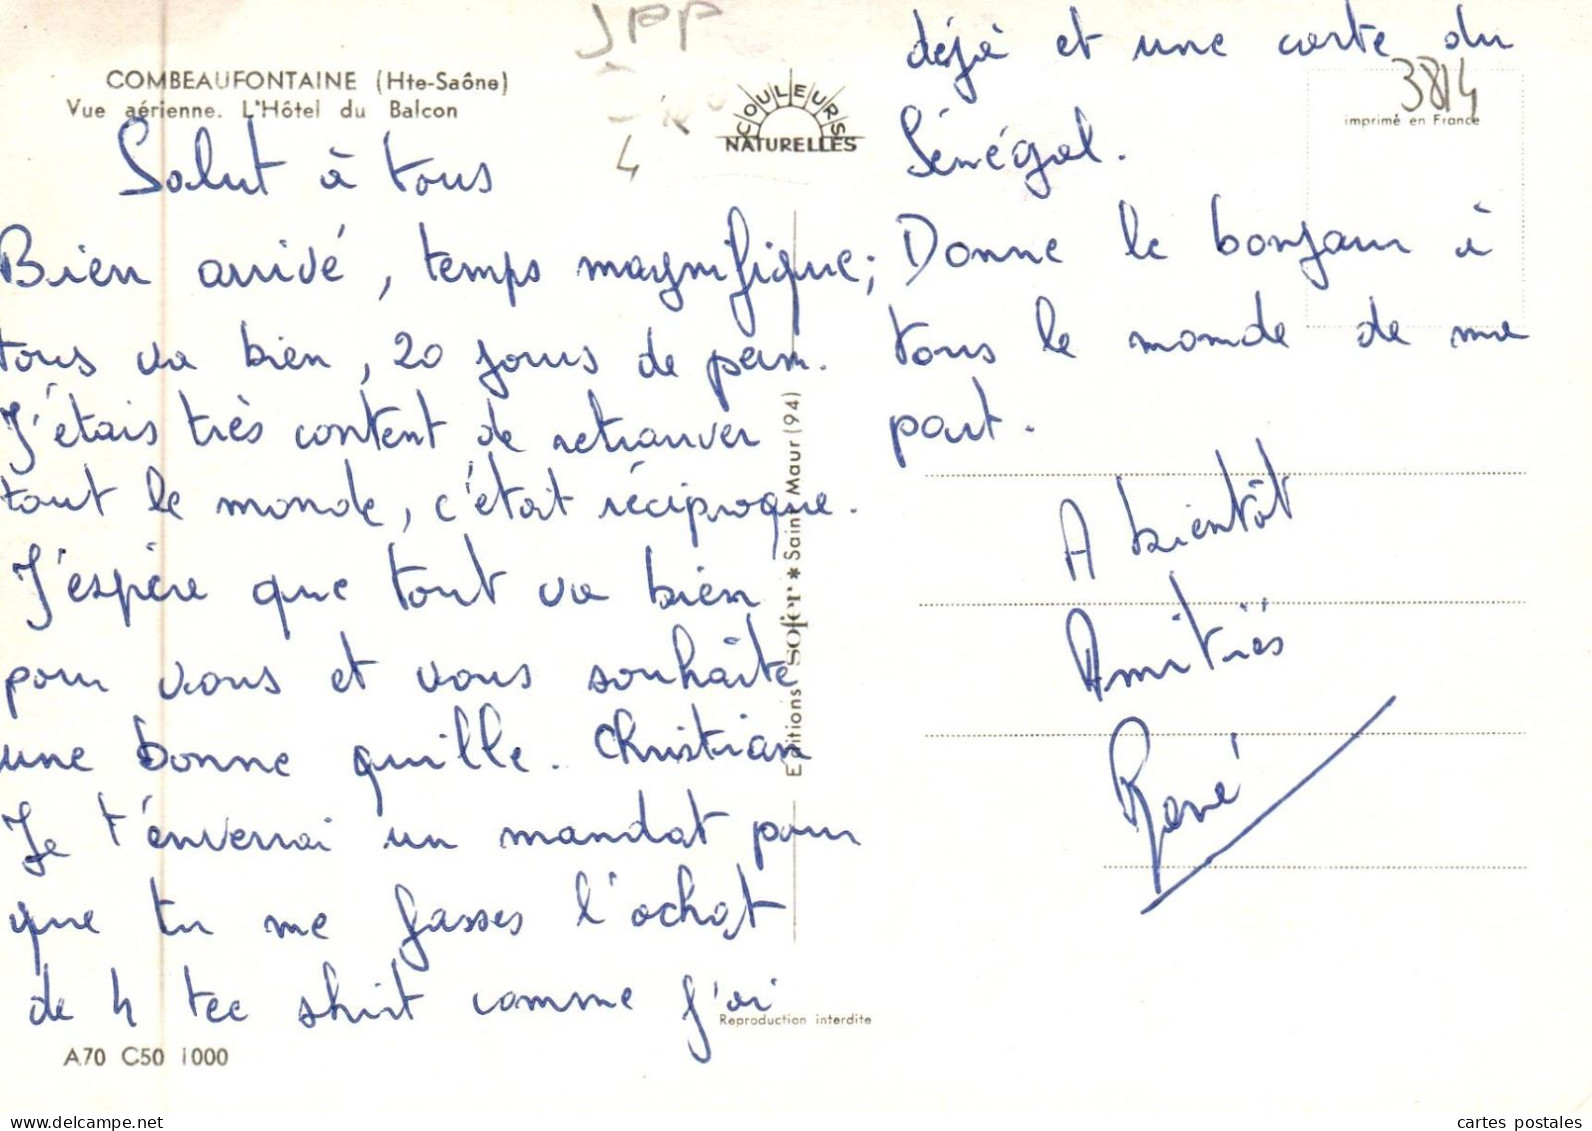 COMBEAUFONTAINE (Hte-Saône)
Vue aérienne. L'Hôtel du Balcon
JPP
4
COULEURS
NATURELLES
3814
imprimé en France
Salut à tous
Bien arrivé, temps magnifique;
tous va bien, 20 jours de perm.
J'étais très content de retrouver
tout le monde, c'était réciproque.
J'espère que tout va bien
pour vous et vous souhaite
une bonne quille. Christian
Je t'enverrai un mandat pour
que tu me fasses l'achat
de 4 tee shirt comme j'ai
déjà et une carte du
Sénégal.
Donne le bonjour à
tous le monde de ma
part.
A bientôt
Amitiés
René
Editions sofer * Saint-Maur (94)
Reproduction interdite
A70 C50 1000
www.delcampe.net
cartes postales